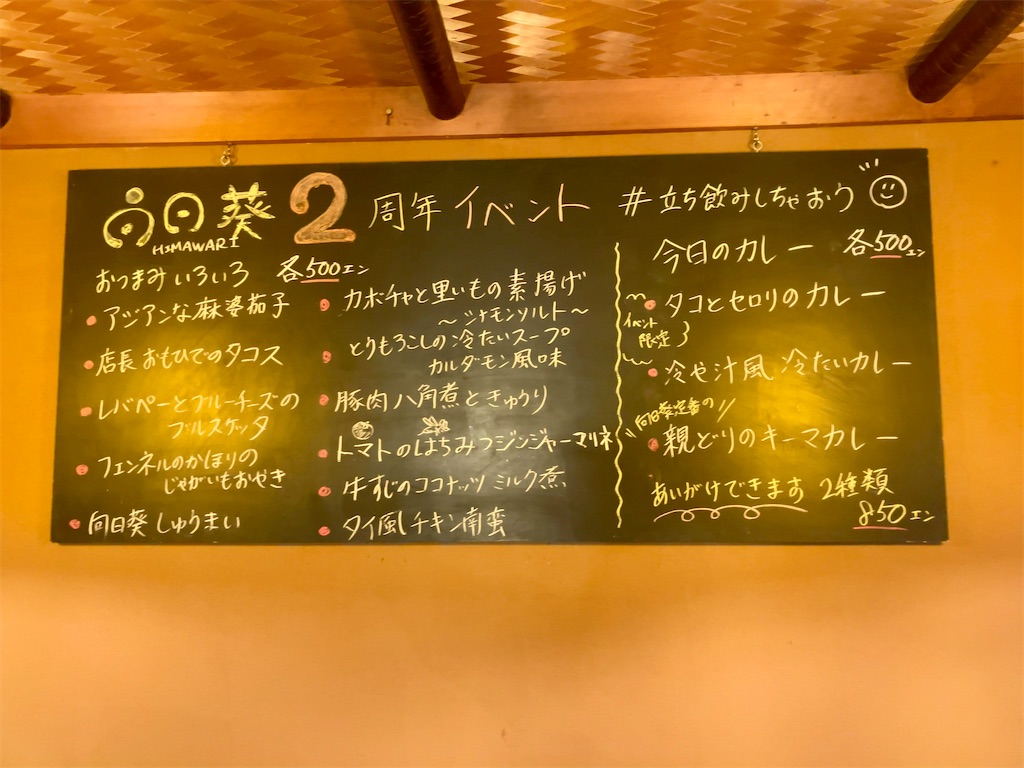 向日葵 2周年イベント #立ち飲みしちゃおう
HIMAWARI
おつまみいろいろ 各500エン
アジアンな麻婆茄子
店長おもひでのタコス
レバペーとブルーチーズの
ブルスケッタ
フェンネルのかほりの
じゃがいもおやき
向日葵しゅうまい
カボチャと里いもの素揚げ
～シナモンソルト～
とうもろこしの冷たいスープ
カルダモン風味
豚肉八角煮ときゅうり
トマトのはちみつジンジャーマリネ
牛すじのココナッツミルク煮
タイ風チキン南蛮
今日のカレー 各500エン
タコとセロリのカレー
イベント
限定
冷や汁風 冷たいカレー
向日葵定番の
親どりのキーマカレー
あいがけできます 2種類
850エン